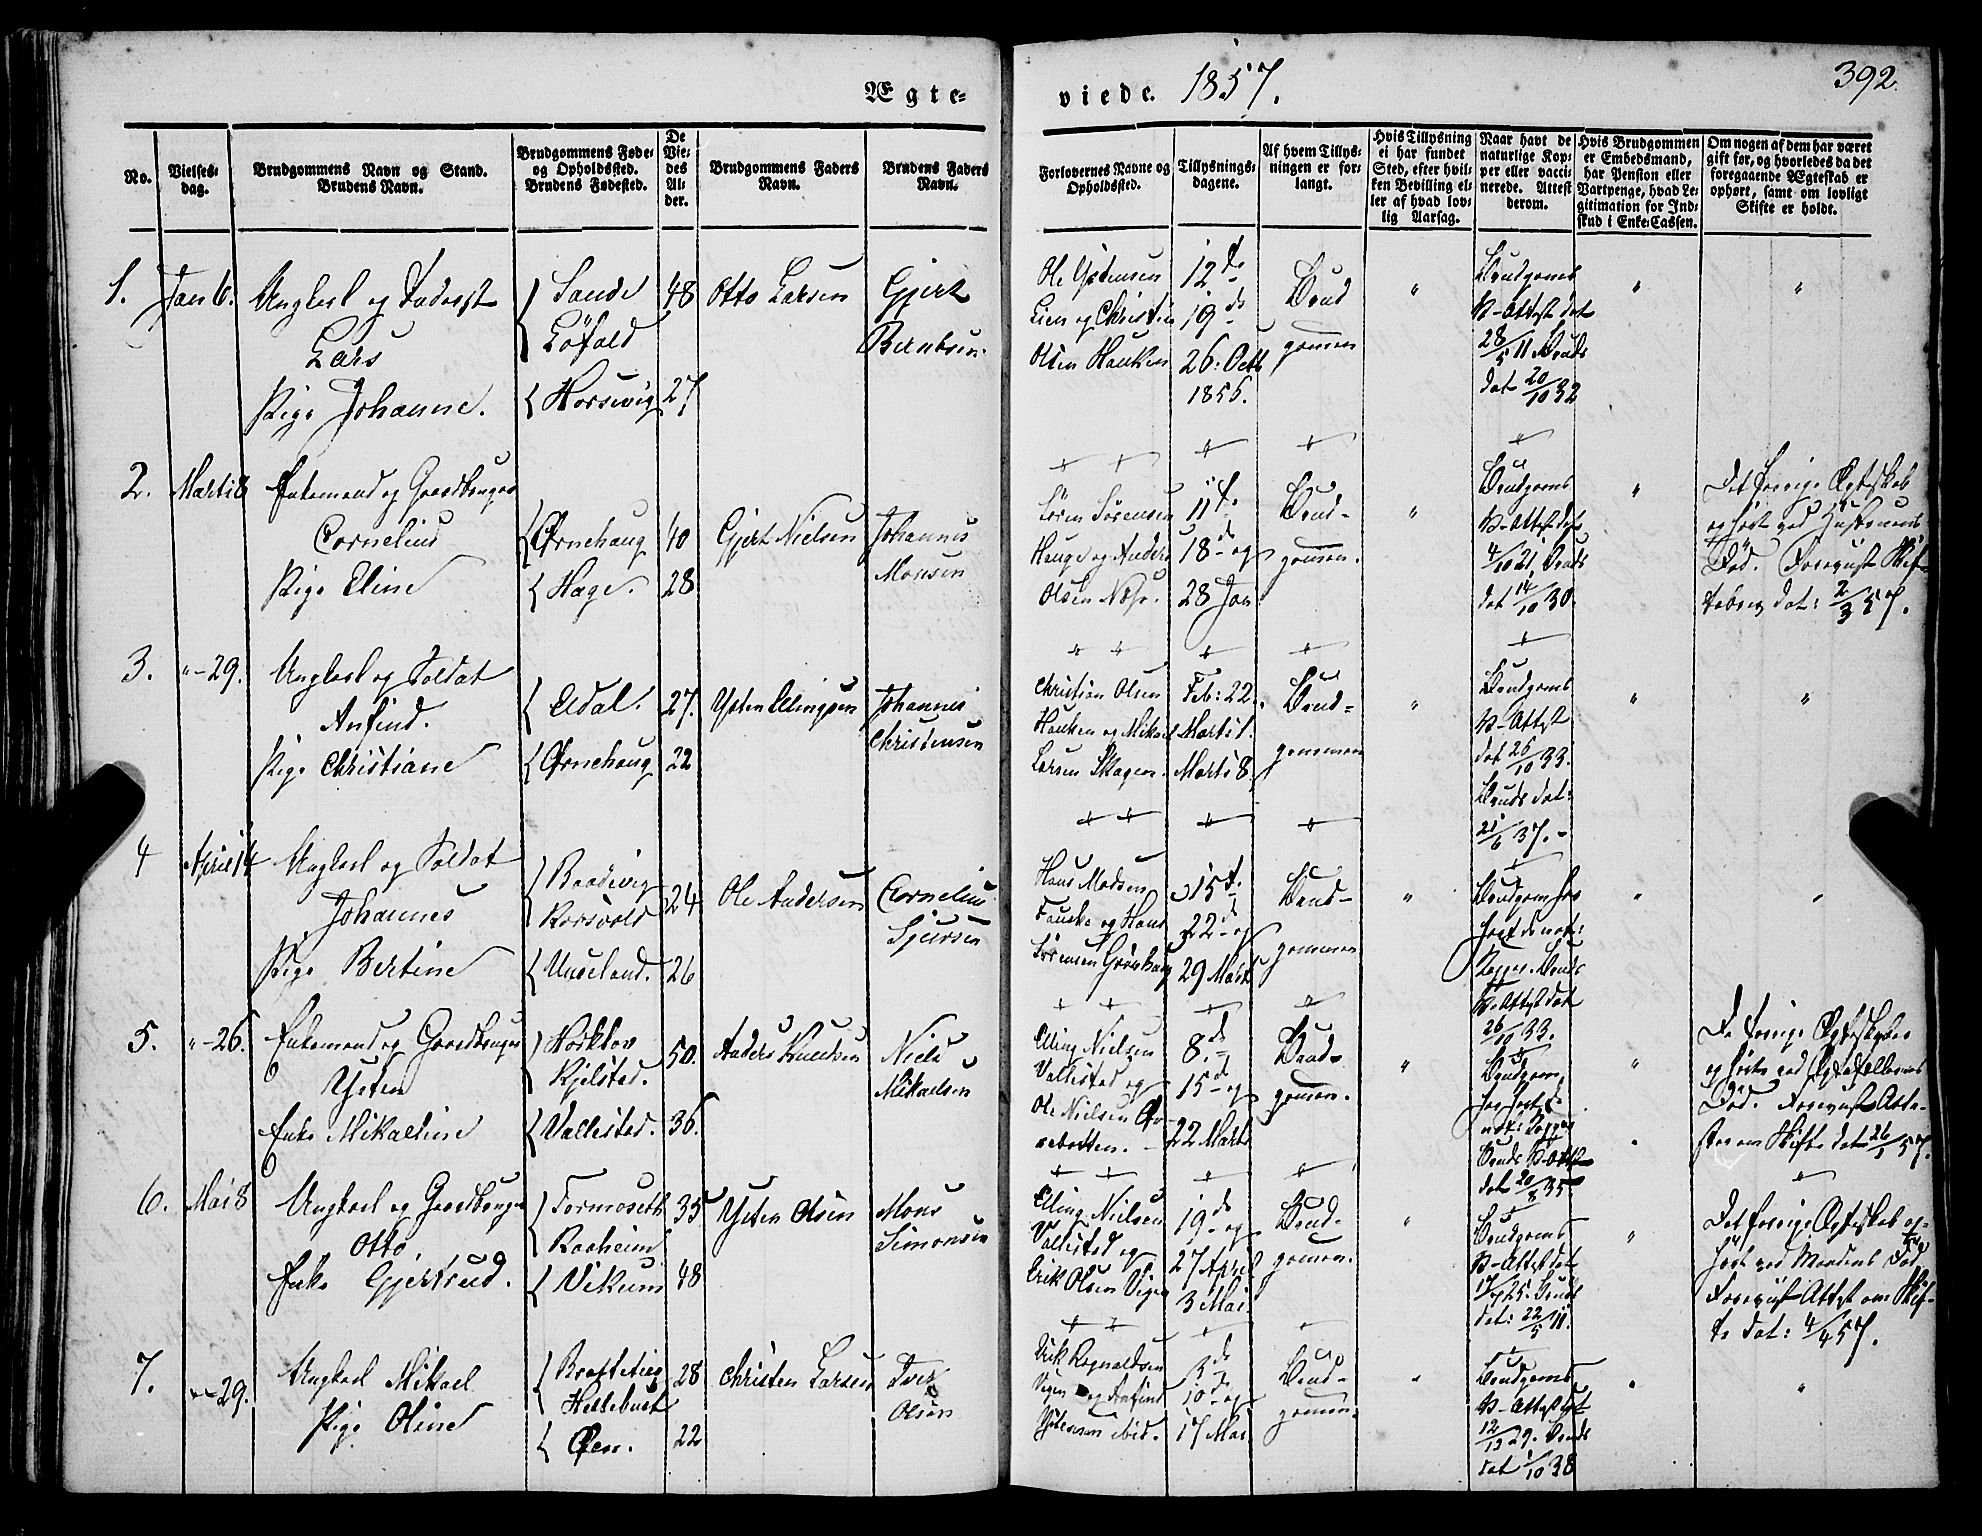 Ægte-
viede. 1857.
392.
No.
Vielses-
dag.
Brudgommens Navn og Stand.
Brudens Navn.
Brudgommens Føde-
og Opholdssted.
Brudens Fødested.
De
Vie-
des
Al-
der.
Brudgommens Faders
Navn.
Brudens Faders
Navn.
Forlovernes Navne og
Opholdssted.
Tillysnings-
dagene.
Af hvem Tillys-
ningen er for-
langt.
Hvis Tillysning
ei har fundet
Sted, efter hvil-
ken Bevilling el-
ler af hvad lov-
lig Aarsag.
Naar havt de
naturlige Kop-
per eller vacci-
nerede. Attest
derom.
Hvis Brudgommen
er Embedsmand,
har Pension eller
Vartpenge, hvad Le-
gitimation for Ind-
skud i Enke-Cassen.
Om nogen af dem har været
gift før, og hvorledes da det
foregaaende Ægteskab er
ophørt, samt om lovligt
Skifte er holdt.
1. Jan 6. Ungkarl og
Lars
Pige Johanne.
Sande
Løfald
Horsevig
48
27
Otto Larsen
Gjert
Berntsen.
Ole Ystensen
Lien og Christen
Olsen Hauken
12te
19de
26. Octb
1856.
Brud
gomen
Brudgoms
V-Attest dat
28/5 11 Bruds
dat 20/10 32
2. Marts 8 Enkemand og Gaardbruger
Cornelius
Pige Eline
Ørnehaug
Hage.
40
28
Gjert Nielsen
Johannes
Monsen
Søren Sørensen
Hauge og Anders
Olsen Næss.
11te
18de og
28 Jan
Brud-
gomen.
Brudgoms
V-Attest dat
4/10 21, Bruds
dat 14/10 30.
Det forrige Ægteskab
ophørt ved Hustruens
Død. Forevist Skif-
tebrev dat: 2/3 57.
3. "-29. Ungkarl og Soldat
Anfind.
Pige Christiane
Aedal.
Ørnehaug
27.
22
Ysten Ellingsen
Johannes
Christensen
Christian Olsen
Hauken og Mikael
Larsen Skagen.
Feb: 22.
Marts 1.
Marts 8.
Brud-
gommen
Brudgoms
V-Attest
dat 26/10 33.
Bruds dat:
21/6 37.-
4 April 14 Ungkarl og Soldat
Johannes
Pige Bertine
Raadevig
Korsvold
Unseland.
24
26
Ole Andersen
Cornelius
Sjursen
Hans Madsen
Fauske og Hans
Sørensen Grønhaug
15de
22de og
29 Marts
Brud-
gommen
Brudgom har
havt de nat:
Kopper. Bruds
V-Attest dat
26/10 33.
5. "-26. Enkemand og Gaardbruger
Ysten
Enke Mikaeline
Kjelstad.
Vallestad.
50.
36.
Anders Knudsen
Niels
Mikaelsen
Elling Nielsen
Vallestad og
Ole Nielsen
8de
15de og
22 Marts
Brud-
gomen.
Brudgom
har havt d:
nat: Kopper
Bruds V-Att
dat 20/8 35
De forrige Ægteskaber
ophørte ved Ægtefællernes
Død. Forevist Atte-
ster om Skifte dat 26/1 57.
6. Mai 8 Ungkarl og Gaardbruger
Otto
Enke Gjertrud.
Formoseth
Raaheim
Vikum
35
48
Ysten Olsen
Mons
Simonsen
Elling Nielsen
Vallestad og
Erik Olsen Vigen
19de og
27 April
3 Mai.
Brud-
gomen.
Brudgoms
V-Attest dat
17/7 25. Bruds
dat: 22/5 11.
Det forrige Ægteskab op-
hørt ved Mandens Død
Forevist Attest om Skif-
te dat: 4/4 57.
7. "-29. Ungkarl Mikael
Pige Oline
Hellebust
Øen.
28
22
Christen Larsen
Iver
Olsen
Erik Rognaldsen
Vigen og Anfind
Ystensen ibid.
3de
10de og
17 Mai
Brud-
gomen.
Brudgoms
V-Attest dat
12/12 29. Bruds
dat 1/10 38